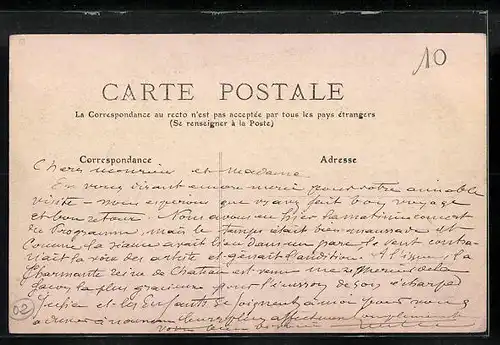 10
CARTE POSTALE
La Correspondance au recto n'est pas acceptée par tous les pays étrangers
(Se renseigner à la Poste)
Correspondance
Adresse
Chers monsieur et Madame
En vous disant encore merci pour votre aimable
visite – nous espérons que vs avez fait bon voyage
et bon retour. Nous avons eu hier la matinée concert
du Programme, mais le temps était bien maussade et
comme la séance avait lieu dans un parc le vent contra-
riait la voix des artistes et gênait l'audition. la
Charmante reine de Chateau est venue me remercier de la
façon la plus gracieuse pour l'envoi de son écharpe
et les Enfants se joignent à moi pour vous
adresser à nouveau leurs plus affectueux compliments
votre bien
02